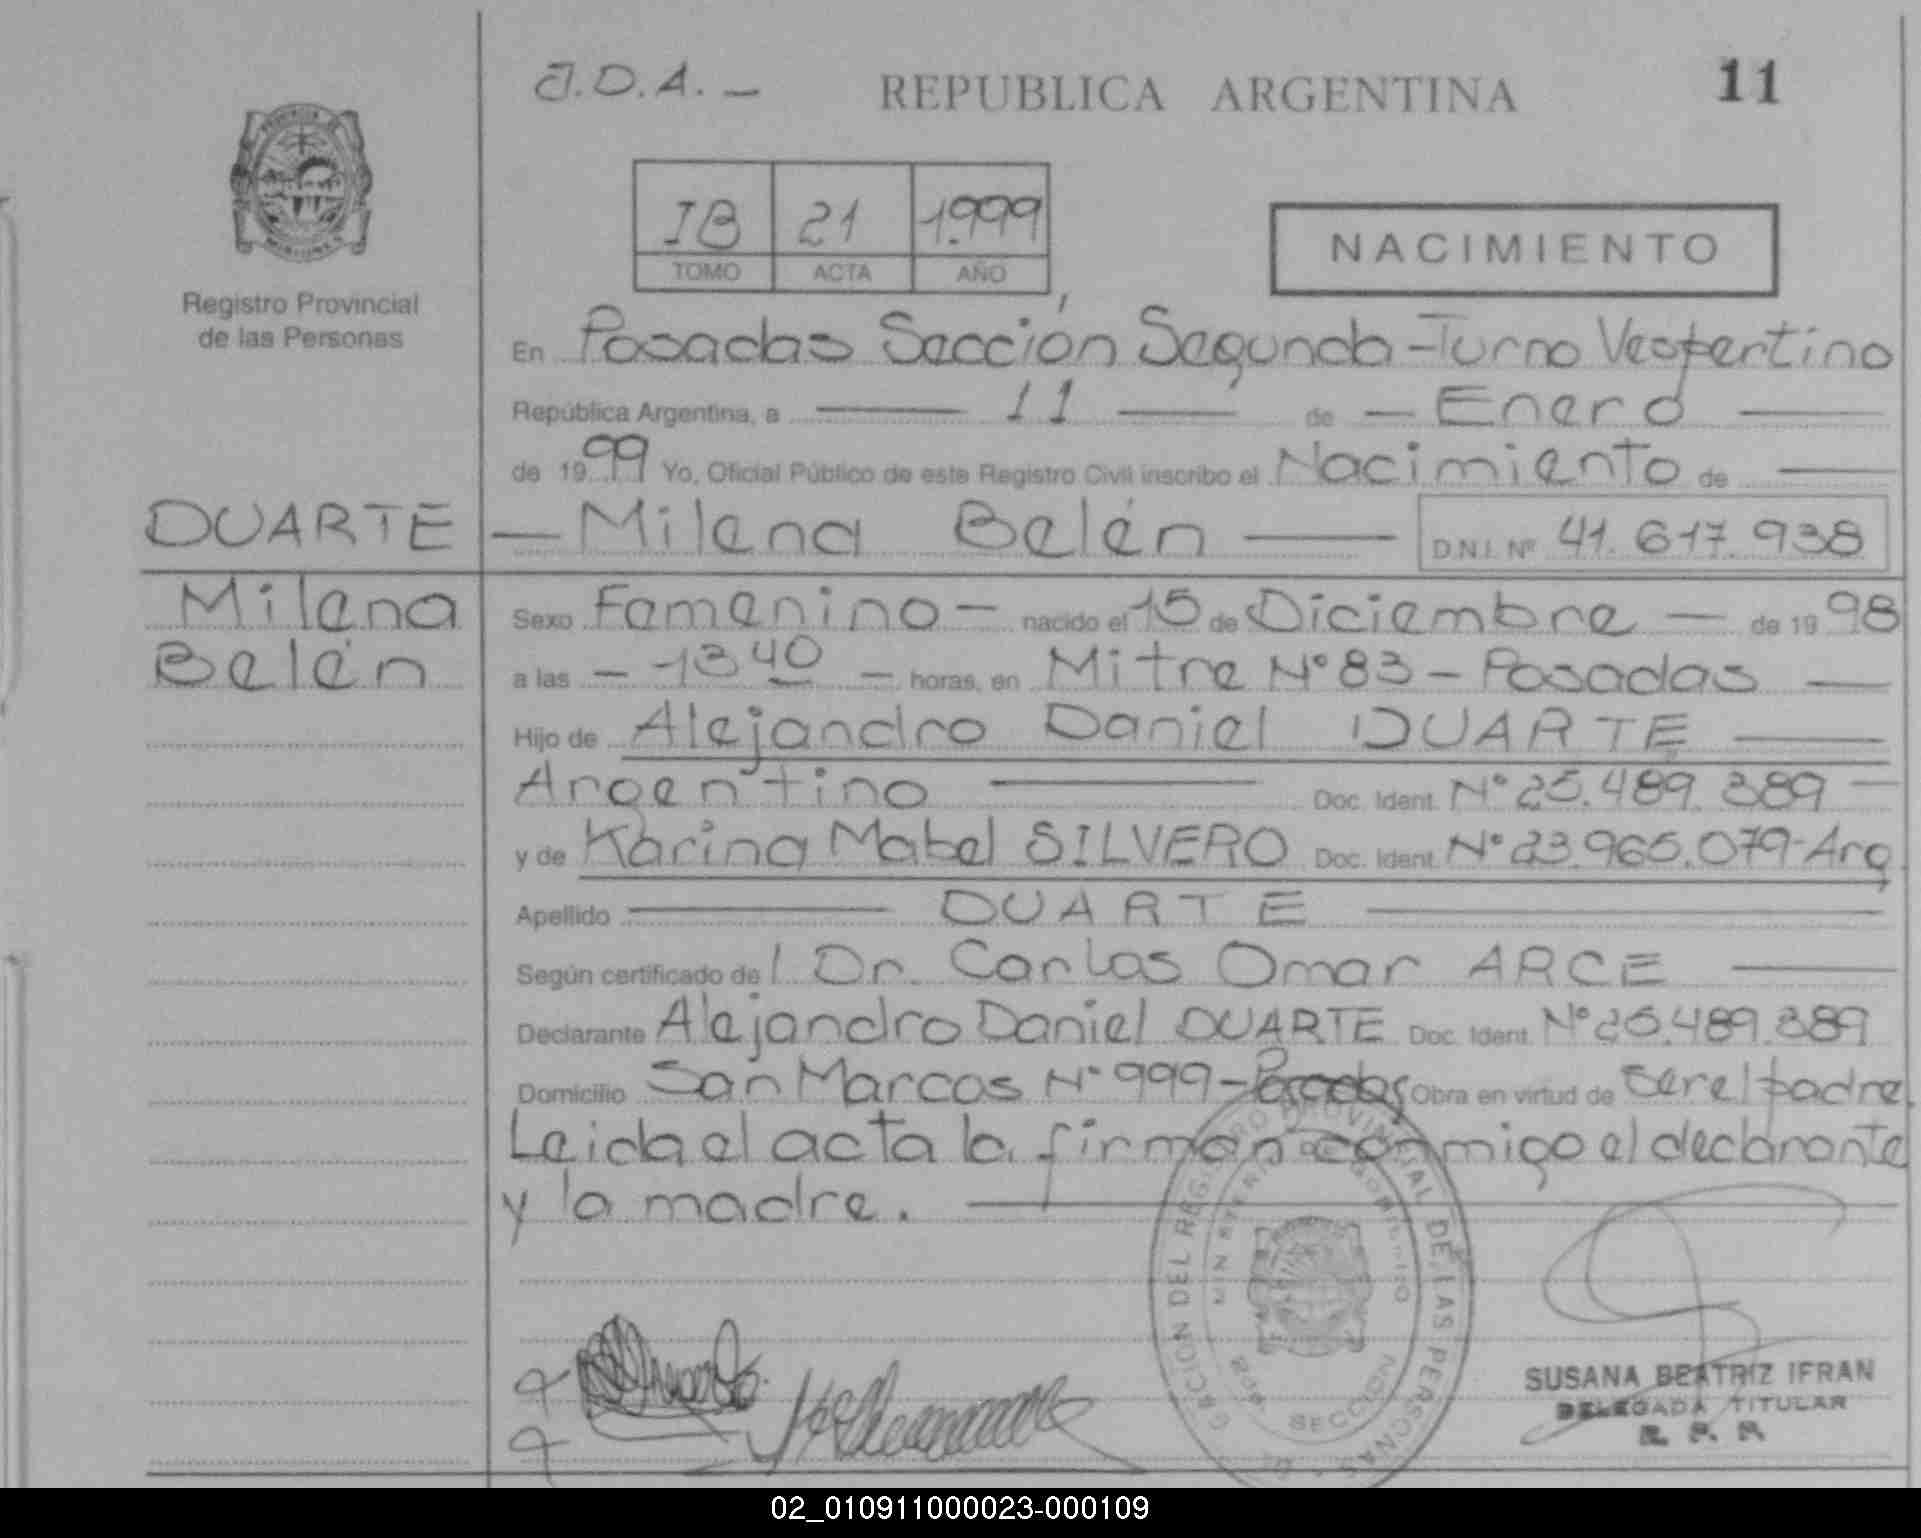 J.D.A. — REPUBLICA ARGENTINA 11
IB 21 1.999
TOMO ACTA AÑO
NACIMIENTO
Registro Provincial
de las Personas
En Posadas Sección Segunda - Turno Vespertino
República Argentina, a — 11 — de — Enero —
de 1999 Yo, Oficial Público de este Registro Civil inscribo el Nacimiento de —
DUARTE — Milena Belén — D.N.I. Nº 41.617.938
Milena
Belén
Sexo Femenino — nacido el 15 de Diciembre — de 1998
a las — 13 40 — horas, en Mitre Nº 83 - Posadas —
Hijo de Alejandro Daniel DUARTE —
Argentino — Doc. Ident. Nº 25.489.389 —
y de Karina Mabel SILVERO Doc. Ident. Nº 23.965.079-Arg.
Apellido — DUARTE —
Según certificado de l Dr. Carlos Omar ARCE —
Declarante Alejandro Daniel DUARTE Doc. Ident. Nº 25.489.389
Domicilio San Marcos Nº 999 - Posadas Obra en virtud de ser el padre.
Leida el acta la firman conmigo el declarante
y la madre. —
REGISTRO PROVINCIAL DE LAS PERSONAS
SECCION
SUSANA BEATRIZ IFRAN
DELEGADA TITULAR
R. P. P.
02_010911000023-000109